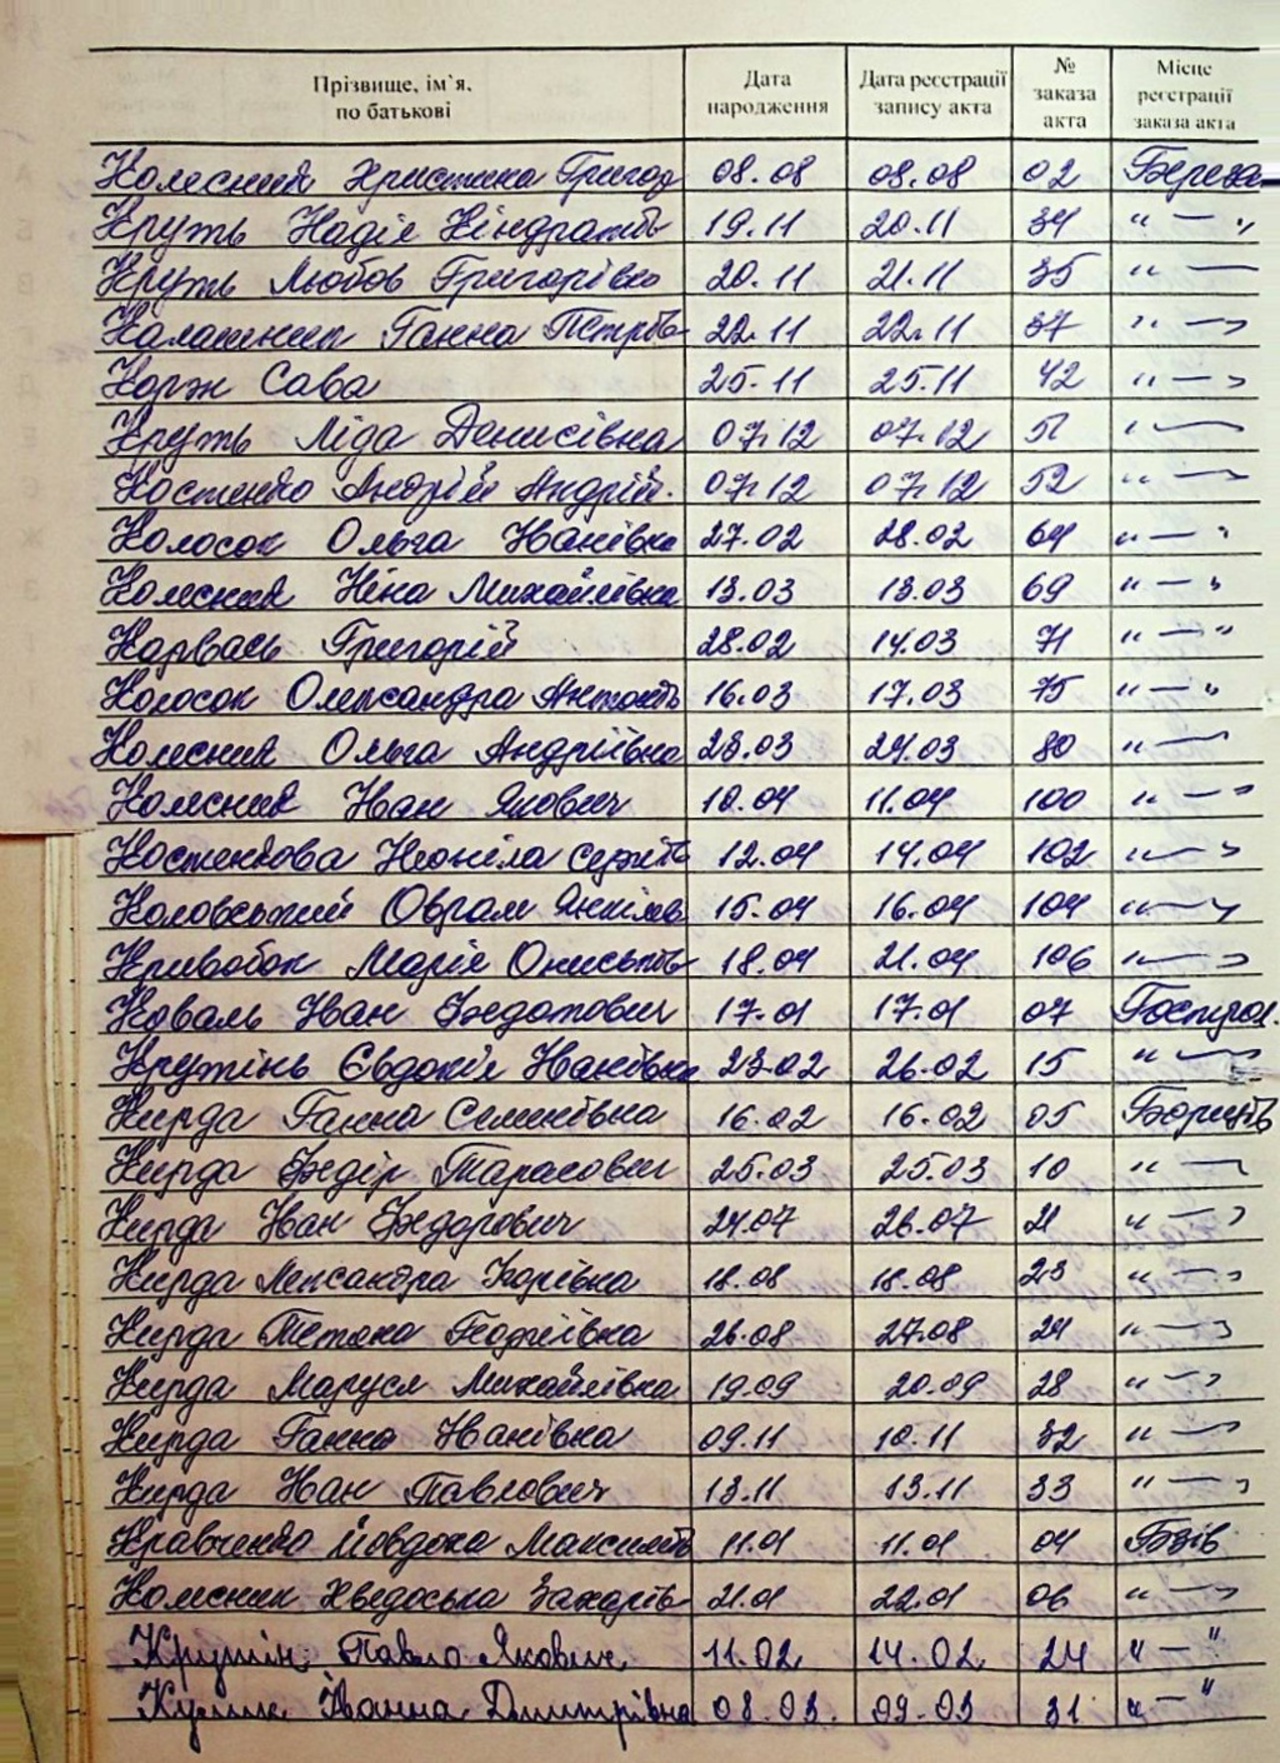 Прізвище, ім`я, по батькові Дата народження Дата реєстрації запису акта № заказа акта Місце реєстрації заказа акта
Колесник Христина Григор 08.08 08.08 02 Береза
Круть Надія Кіндратів 19.11 20.11 34 " — "
Круть Любов Григорівн 20.11 21.11 35 " —
Калашник Ганна Петрів 22.11 22.11 37 " — "
Корж Сава 25.11 25.11 42 " — "
Круть Ліда Денисівна 07.12 07.12 51 " —
Костенко Андрій Андрій. 07.12 07.12 52 " — "
Колосок Ольга Іванівна 27.02 28.02 64 " — "
Колесник Ніна Михайлівна 13.03 13.03 69 " — "
Карвась Григорій 28.02 14.03 71 " — "
Колосок Олександра Антонів 16.03 17.03 75 " — "
Колесник Ольга Андріївна 23.03 24.03 80 " —
Колесник Іван Якович 10.04 11.04 100 " — "
Костенкова Неоніла Сергіїв 12.04 14.04 102 " — "
Коловський Оврам Янкілев 15.04 16.04 104 " — "
Кривобок Марія Ониськів 18.04 21.04 106 " — "
Коваль Іван Федотович 17.01 17.01 07 Гостро.
Крутінь Євдокія Іванівна 23.02 26.02 15 " —
Кирда Ганна Семенівна 16.02 16.02 05 Борщів
Кирда Федір Тарасович 25.03 25.03 10 " —
Кирда Іван Федорович 24.07 26.07 21 " — "
Кирда Лександра Ігорівна 18.08 18.08 23 " — "
Кирда Тетяна Георгіївна 26.08 27.08 24 " — "
Кирда Маруся Михайлівна 19.09 20.09 28 " — "
Кирда Ганна Іванівна 09.11 10.11 32 " — "
Кирда Іван Павлович 13.11 13.11 33 " — "
Кравченко Йовдоха Максимів 11.01 11.01 04 Бзів
Колесник Хведоська Захарів 21.01 22.01 06 " — "
Крутін Павло Якович 11.02 14.02 24 " — "
Кулик Іванна Дмитрівна 08.03. 09.03 31 " — "